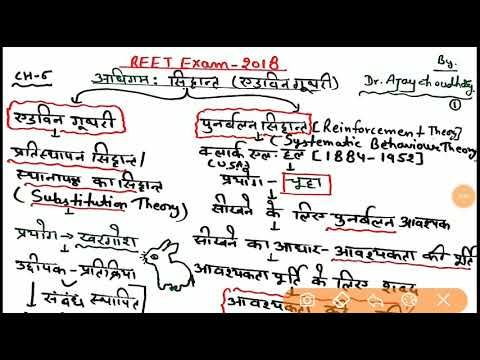 REET Exam-2018
CH-5
अधिगम: सिद्धान्त (एडविन गूथरी)
By:
Dr. Ajay choudhary
1
एडविन गूथरी
प्रतिस्थापन सिद्धान्त/
स्थानापन्न का सिद्धान्त
(Substitution Theory)
प्रयोग → खरगोश
उद्दीपक-प्रतिक्रिया
संबंध स्थापित
पुनर्बलन सिद्धान्त [Reinforcement Theory]
(Systematic Behaviour Theory)
क्लार्क एल. हल [1884-1952]
(USA)
प्रयोग - चूहा
सीखने के लिए पुनर्बलन आवश्यक
सीखने का आधार - आवश्यकता की पूर्ति
आवश्यकता पूर्ति के लिए
आवश्यकता